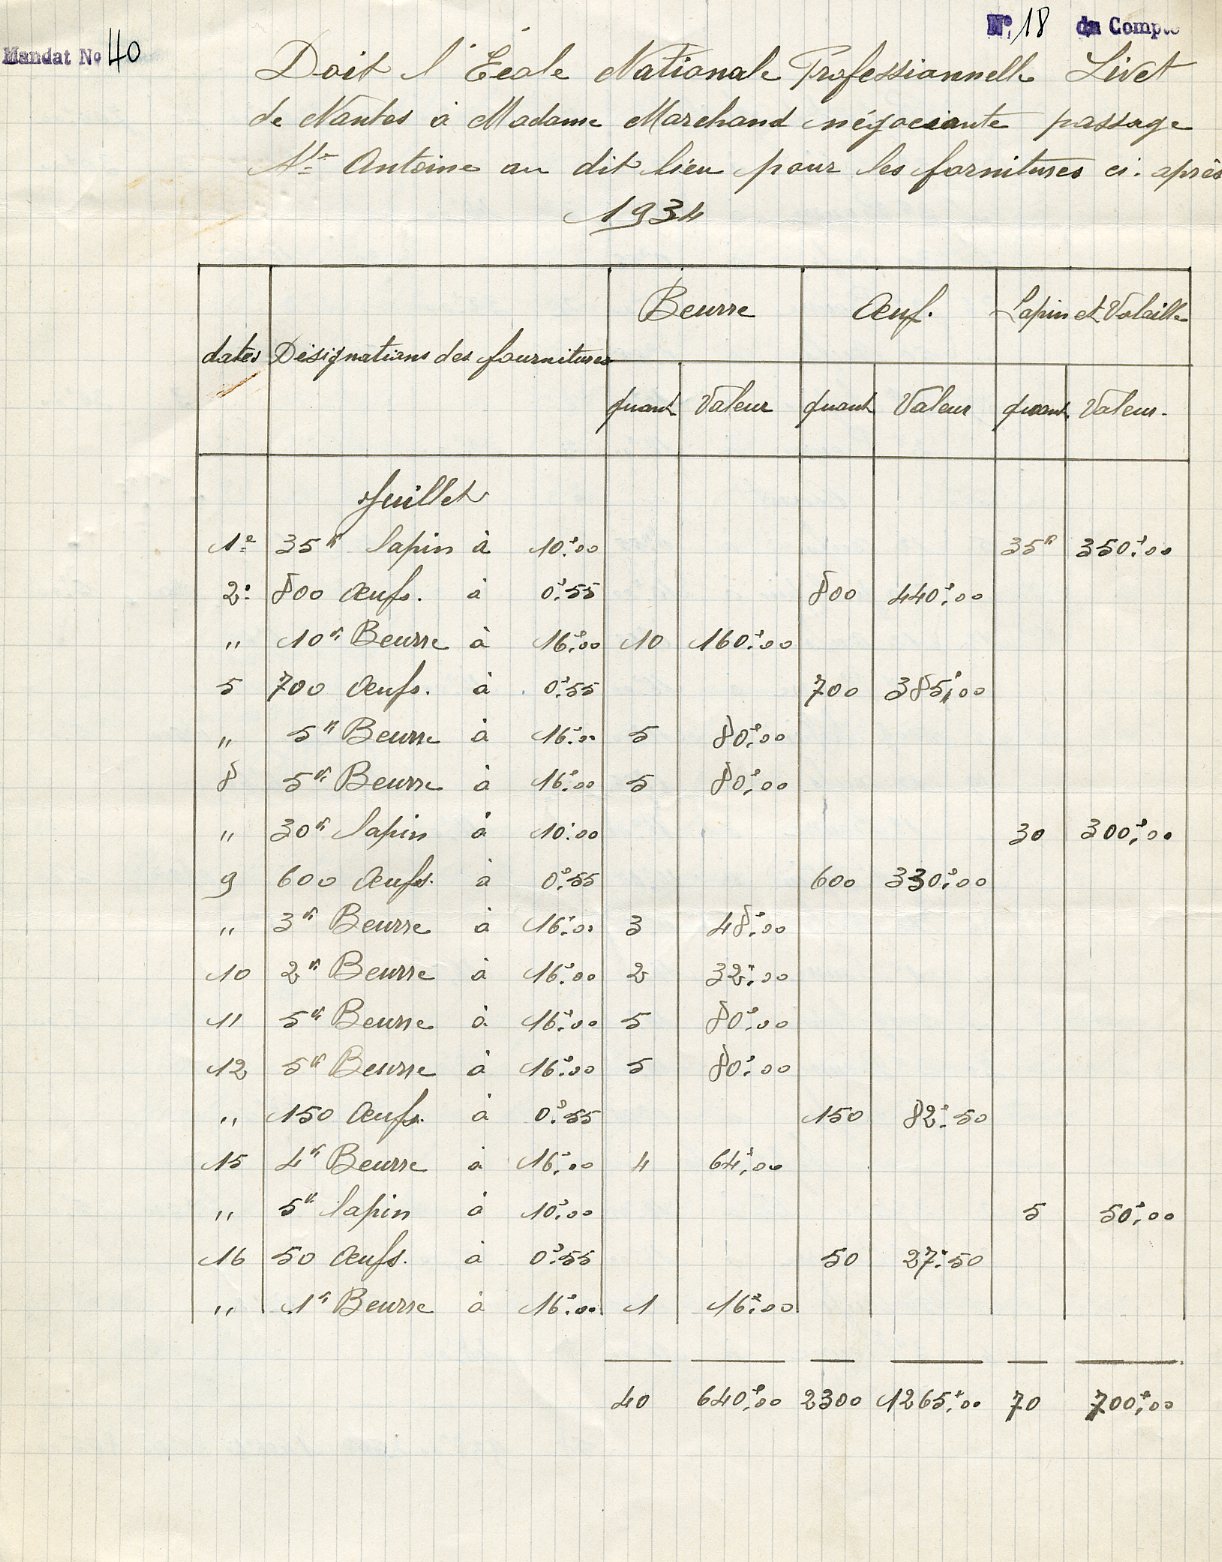 Mandat No 40
No. 18 du Compte
Doit l'École Nationale Professionnelle Livet
de Nantes à Madame Marchand négociante passage
Ste Antoine au dit lieu pour les fornitures ci-après
1934
dates Désignations des fournitures Beurre Œuf. Lapin et Volaille
quant Valeur quant Valeur quant Valeur
Juillet
1e 35k lapin à 10f.00 35k 350f.00
2. 800 Œufs. à 0f.55 800 440f.00
" 10k Beurre à 16f.00 10 160f.00
5 700 Œufs. à 0f.55 700 385f.00
" 5k Beurre à 16f.00 5 80f.00
8 5k Beurre à 16f.00 5 80f.00
" 30k lapin à 10f.00 30 300f.00
9 600 Œufs. à 0f.55 600 330f.00
" 3k Beurre à 16f.00 3 48f.00
10 2k Beurre à 16f.00 2 32f.00
11 5k Beurre à 16f.00 5 80f.00
12 5k Beurre à 16f.00 5 80f.00
" 150 Œufs. à 0f.55 150 82f.50
15 4k Beurre à 16f.00 4 64f.00
" 5k lapin à 10f.00 5 50f.00
16 50 Œufs. à 0f.55 50 27f.50
" 1k Beurre à 16f.00 1 16f.00
40 640f.00 2300 1265f.00 70 700f.00